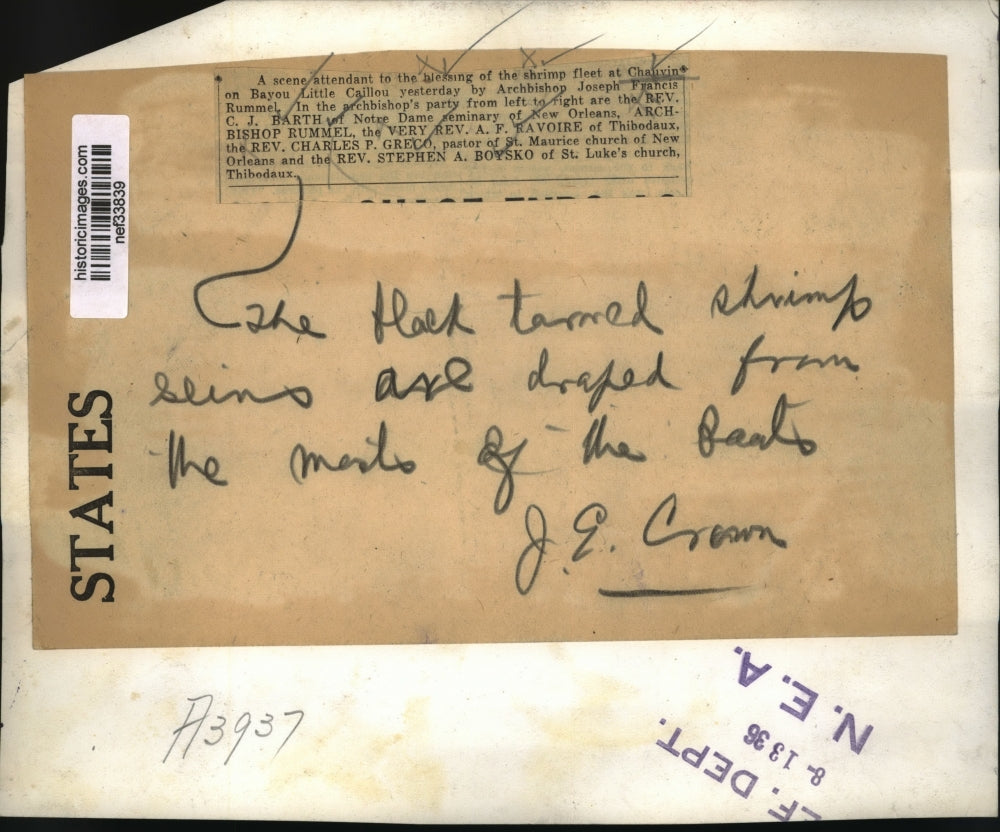 A scene attendant to the blessing of the shrimp fleet at Chauvin
on Bayou Little Caillou yesterday by Archbishop Joseph Francis
Rummel. In the archbishop's party from left to right are the REV.
C. J. BARTH of Notre Dame seminary of New Orleans, ARCH-
BISHOP RUMMEL, the VERY REV. A. F. RAVOIRE of Thibodaux,
the REV. CHARLES P. GRECO, pastor of St. Maurice church of New
Orleans and the REV. STEPHEN A. BOYSKO of St. Luke's church,
Thibodaux.
historicimages.com
nef33839
The black tarred shrimp
seins are draped from
the masts of the boats
J. E. Crown
STATES
A3937
N. E. A.
8-1336
EF. DEPT.